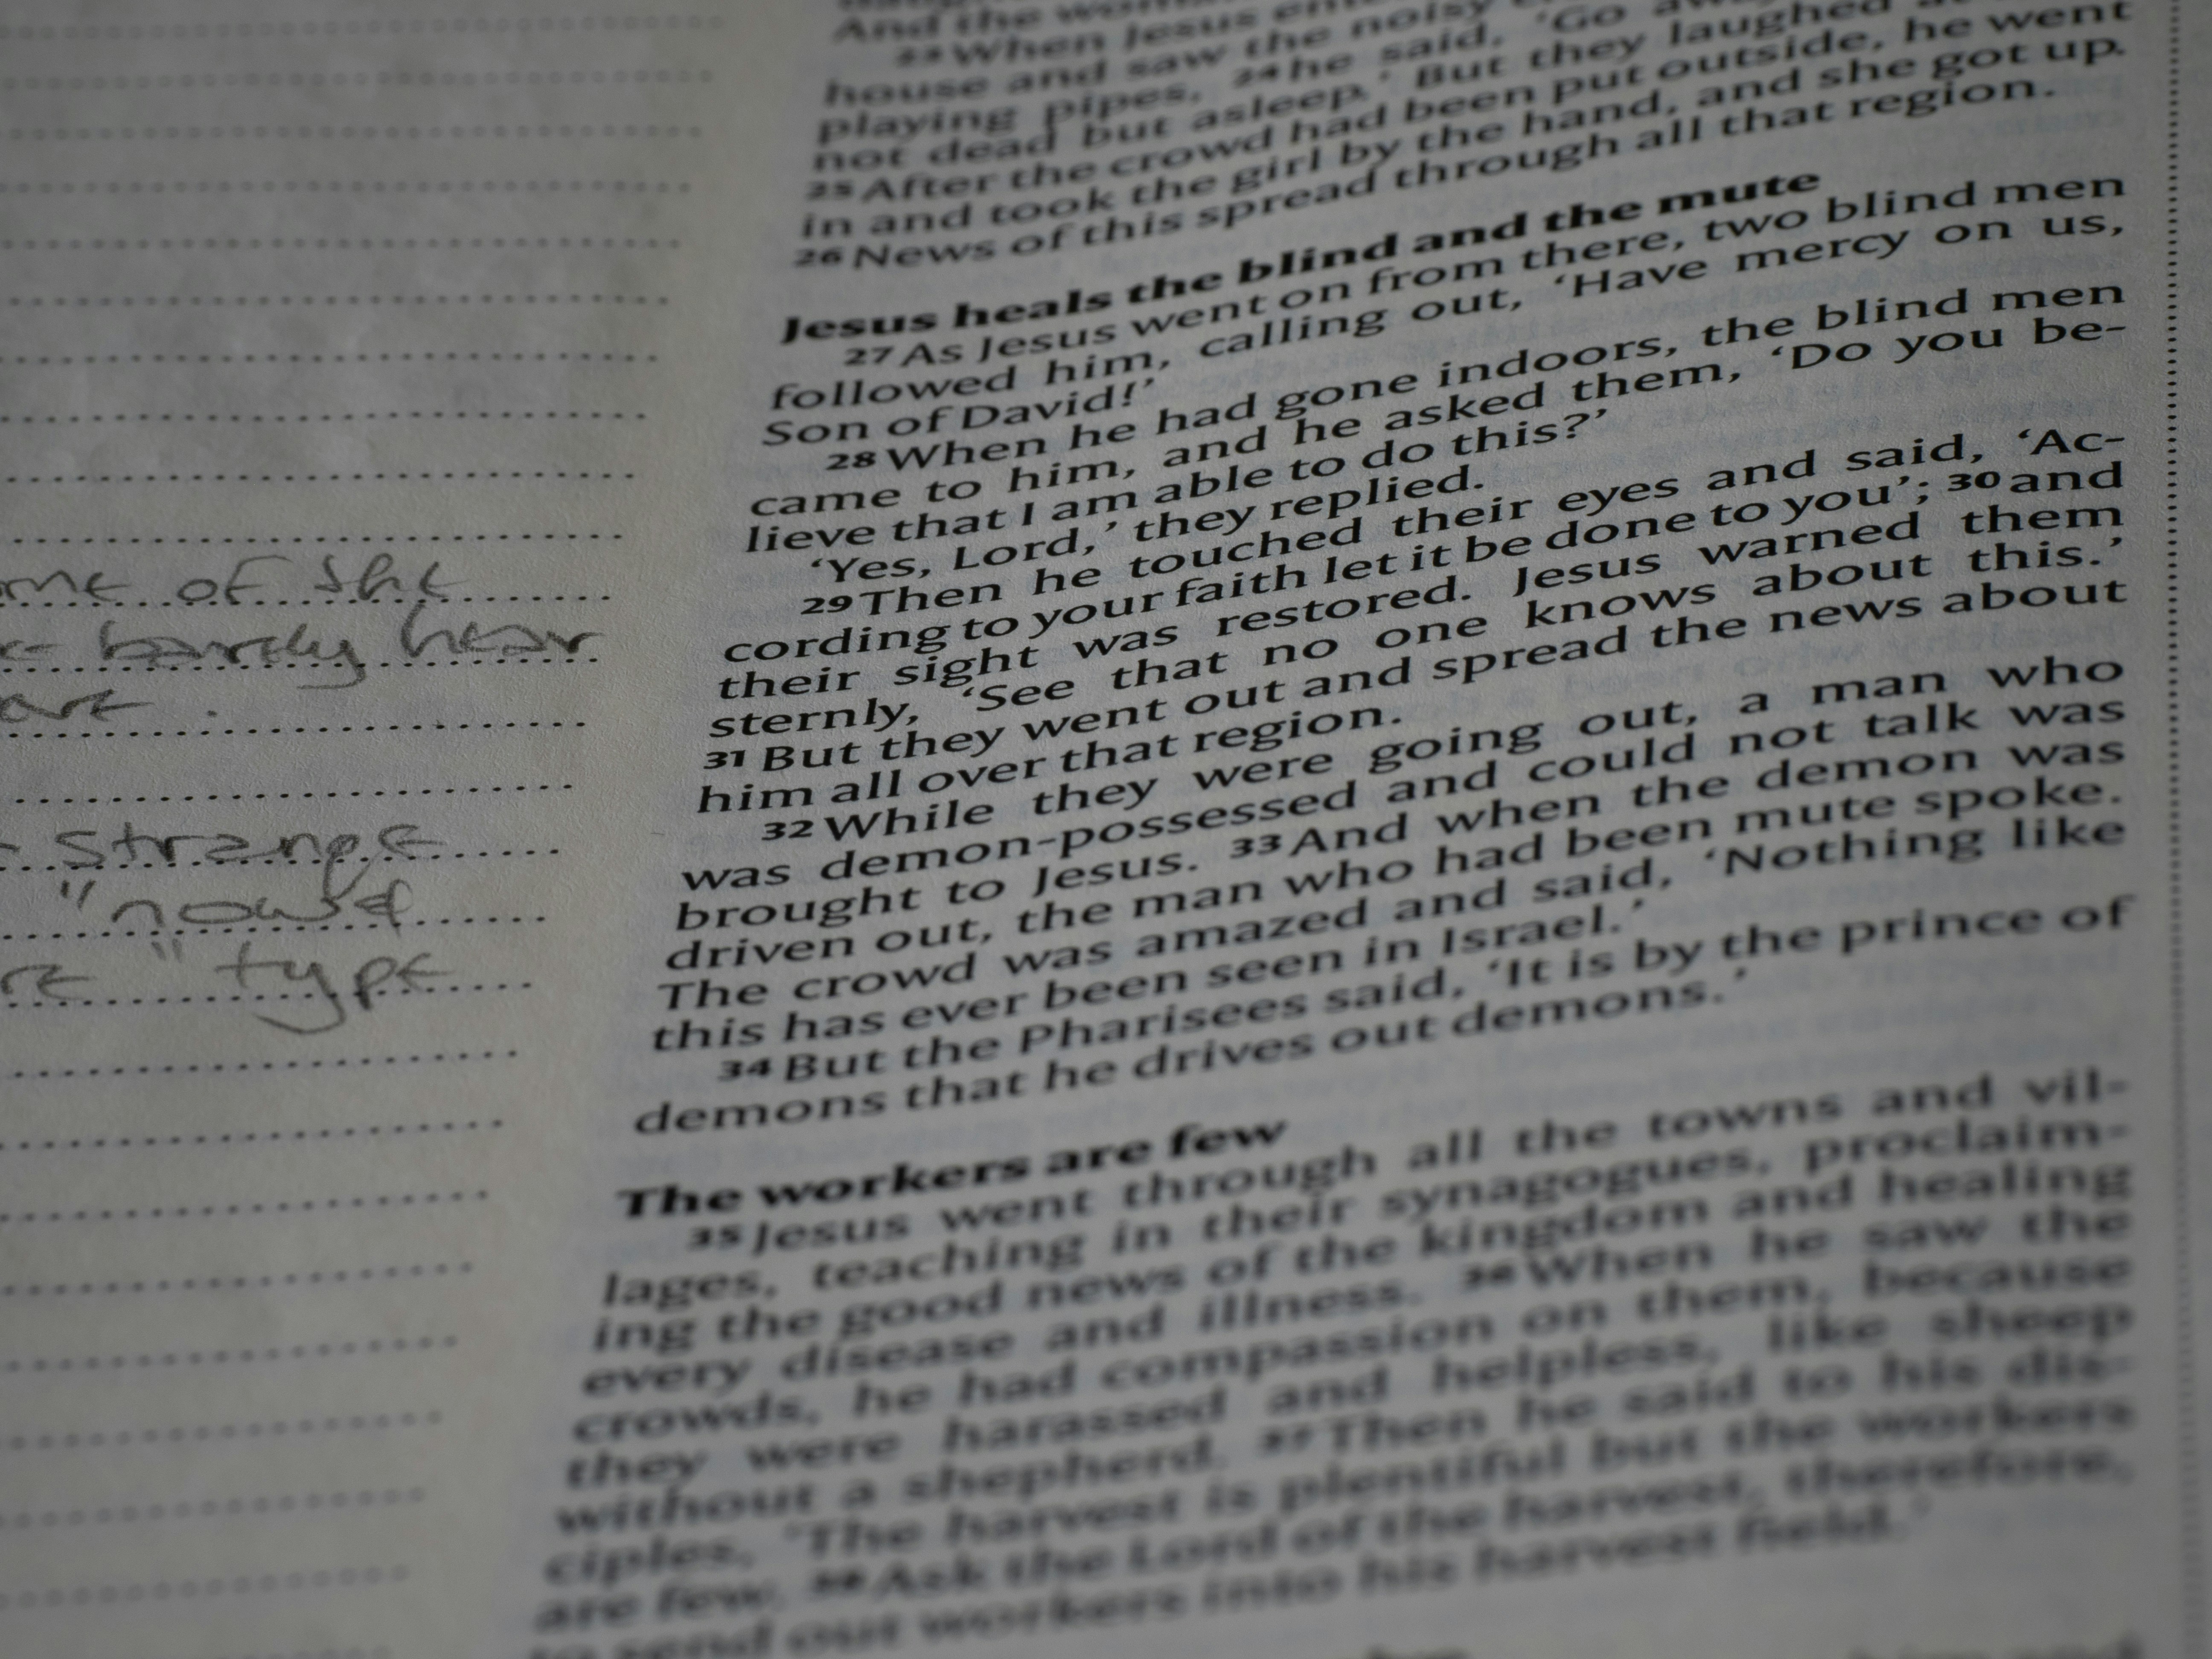 ome of the
barely hear
art.
strange
"nowd
re" type
And the
23 When Jesus
house and saw the noisy
playing pipes, 24 he said, ‘Go
not dead but asleep.’ But they laughed
25 After the crowd had been put outside, he went
in and took the girl by the hand, and she got up.
26 News of this spread through all that region.
Jesus heals the blind and the mute
27 As Jesus went on from there, two blind men
followed him, calling out, ‘Have mercy on us,
Son of David!’
28 When he had gone indoors, the blind men
came to him, and he asked them, ‘Do you be-
lieve that I am able to do this?’
‘Yes, Lord,’ they replied.
29 Then he touched their eyes and said, ‘Ac-
cording to your faith let it be done to you’; 30 and
their sight was restored. Jesus warned them
sternly, ‘See that no one knows about this.’
31 But they went out and spread the news about
him all over that region.
32 While they were going out, a man who
was demon-possessed and could not talk was
brought to Jesus. 33 And when the demon was
driven out, the man who had been mute spoke.
The crowd was amazed and said, ‘Nothing like
this has ever been seen in Israel.’
34 But the Pharisees said, ‘It is by the prince of
demons that he drives out demons.’
The workers are few
35 Jesus went through all the towns and vil-
lages, teaching in their synagogues, proclaim-
ing the good news of the kingdom and healing
every disease and illness. 36 When he saw the
crowds, he had compassion on them, because
they were harassed and helpless, like sheep
without a shepherd. 37 Then he said to his dis-
ciples, ‘The harvest is plentiful but the workers
are few. 38 Ask the Lord of the harvest, therefore,
to send out workers into his harvest field.’